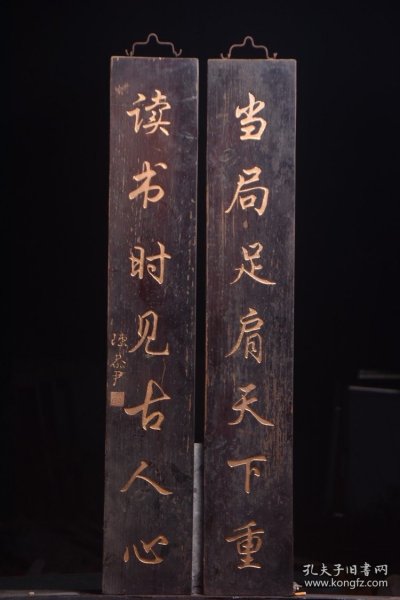 当局足肩天下重
读书时见古人心
陈恭尹
孔夫子旧书网
www.kongfz.com